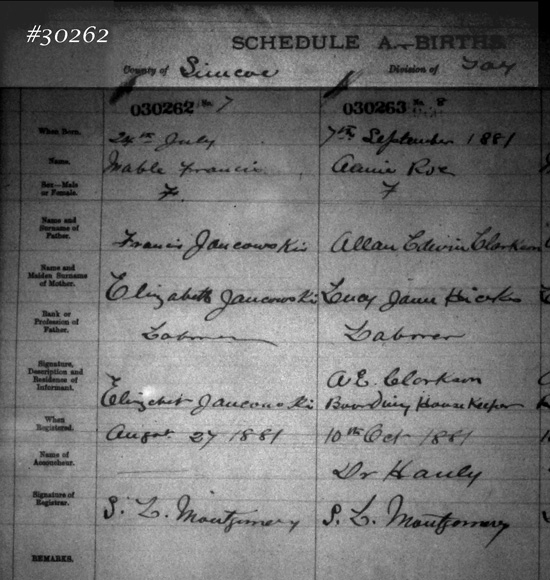 #30262
SCHEDULE A.—BIRTHS
County of Simcoe Division of Tay
030262 No. 7 030263 No. 8
When Born. 24th July 7th September 1881
Name. Mable Francis Annie Roe
Sex—Male
or Female. F F
Name and
Surname of
Father. Francis Jancowskis Allan Edwin Clarkson
Name and
Maiden Surname
of Mother. Elizabeth Jancowski Lucy Jane
Rank or
Profession of
Father. Labourer Laborer
Signature,
Description and
Residence of
Informant. Elizebet Jancowski A E. Clarkson
Boarding House Keeper
When
Registered. August 27 1881 10th Oct 1881
Name of
Accoucheur. Dr Hanly
Signature of
Registrar. S. L. Montgomery S. L. Montgomery
REMARKS.